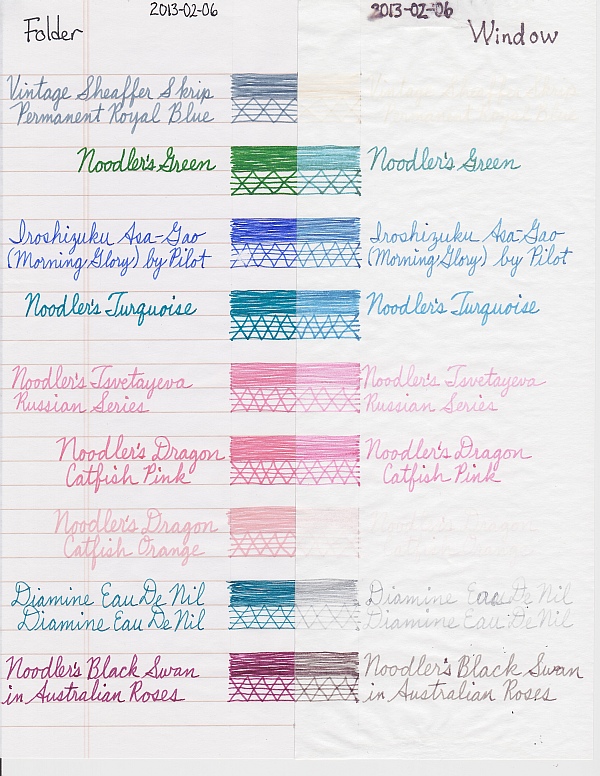 2013-02-06
2013-02-06
Folder
Window
Vintage Sheaffer Skrip
Permanent Royal Blue
Noodler's Green
Noodler's Green
Iroshizuku Asa-Gao
(Morning Glory) by Pilot
Iroshizuku Asa-Gao
(Morning Glory) by Pilot
Noodler's Turquoise
Noodler's Turquoise
Noodler's Tsvetayeva
Russian Series
Noodler's Tsvetayeva
Russian Series
Noodler's Dragon
Catfish Pink
Noodler's Dragon
Catfish Pink
Noodler's Dragon
Catfish Orange
Diamine Eau De Nil
Diamine Eau De Nil
Diamine Eau De Nil
Diamine Eau De Nil
Noodler's Black Swan
in Australian Roses
Noodler's Black Swan
in Australian Roses